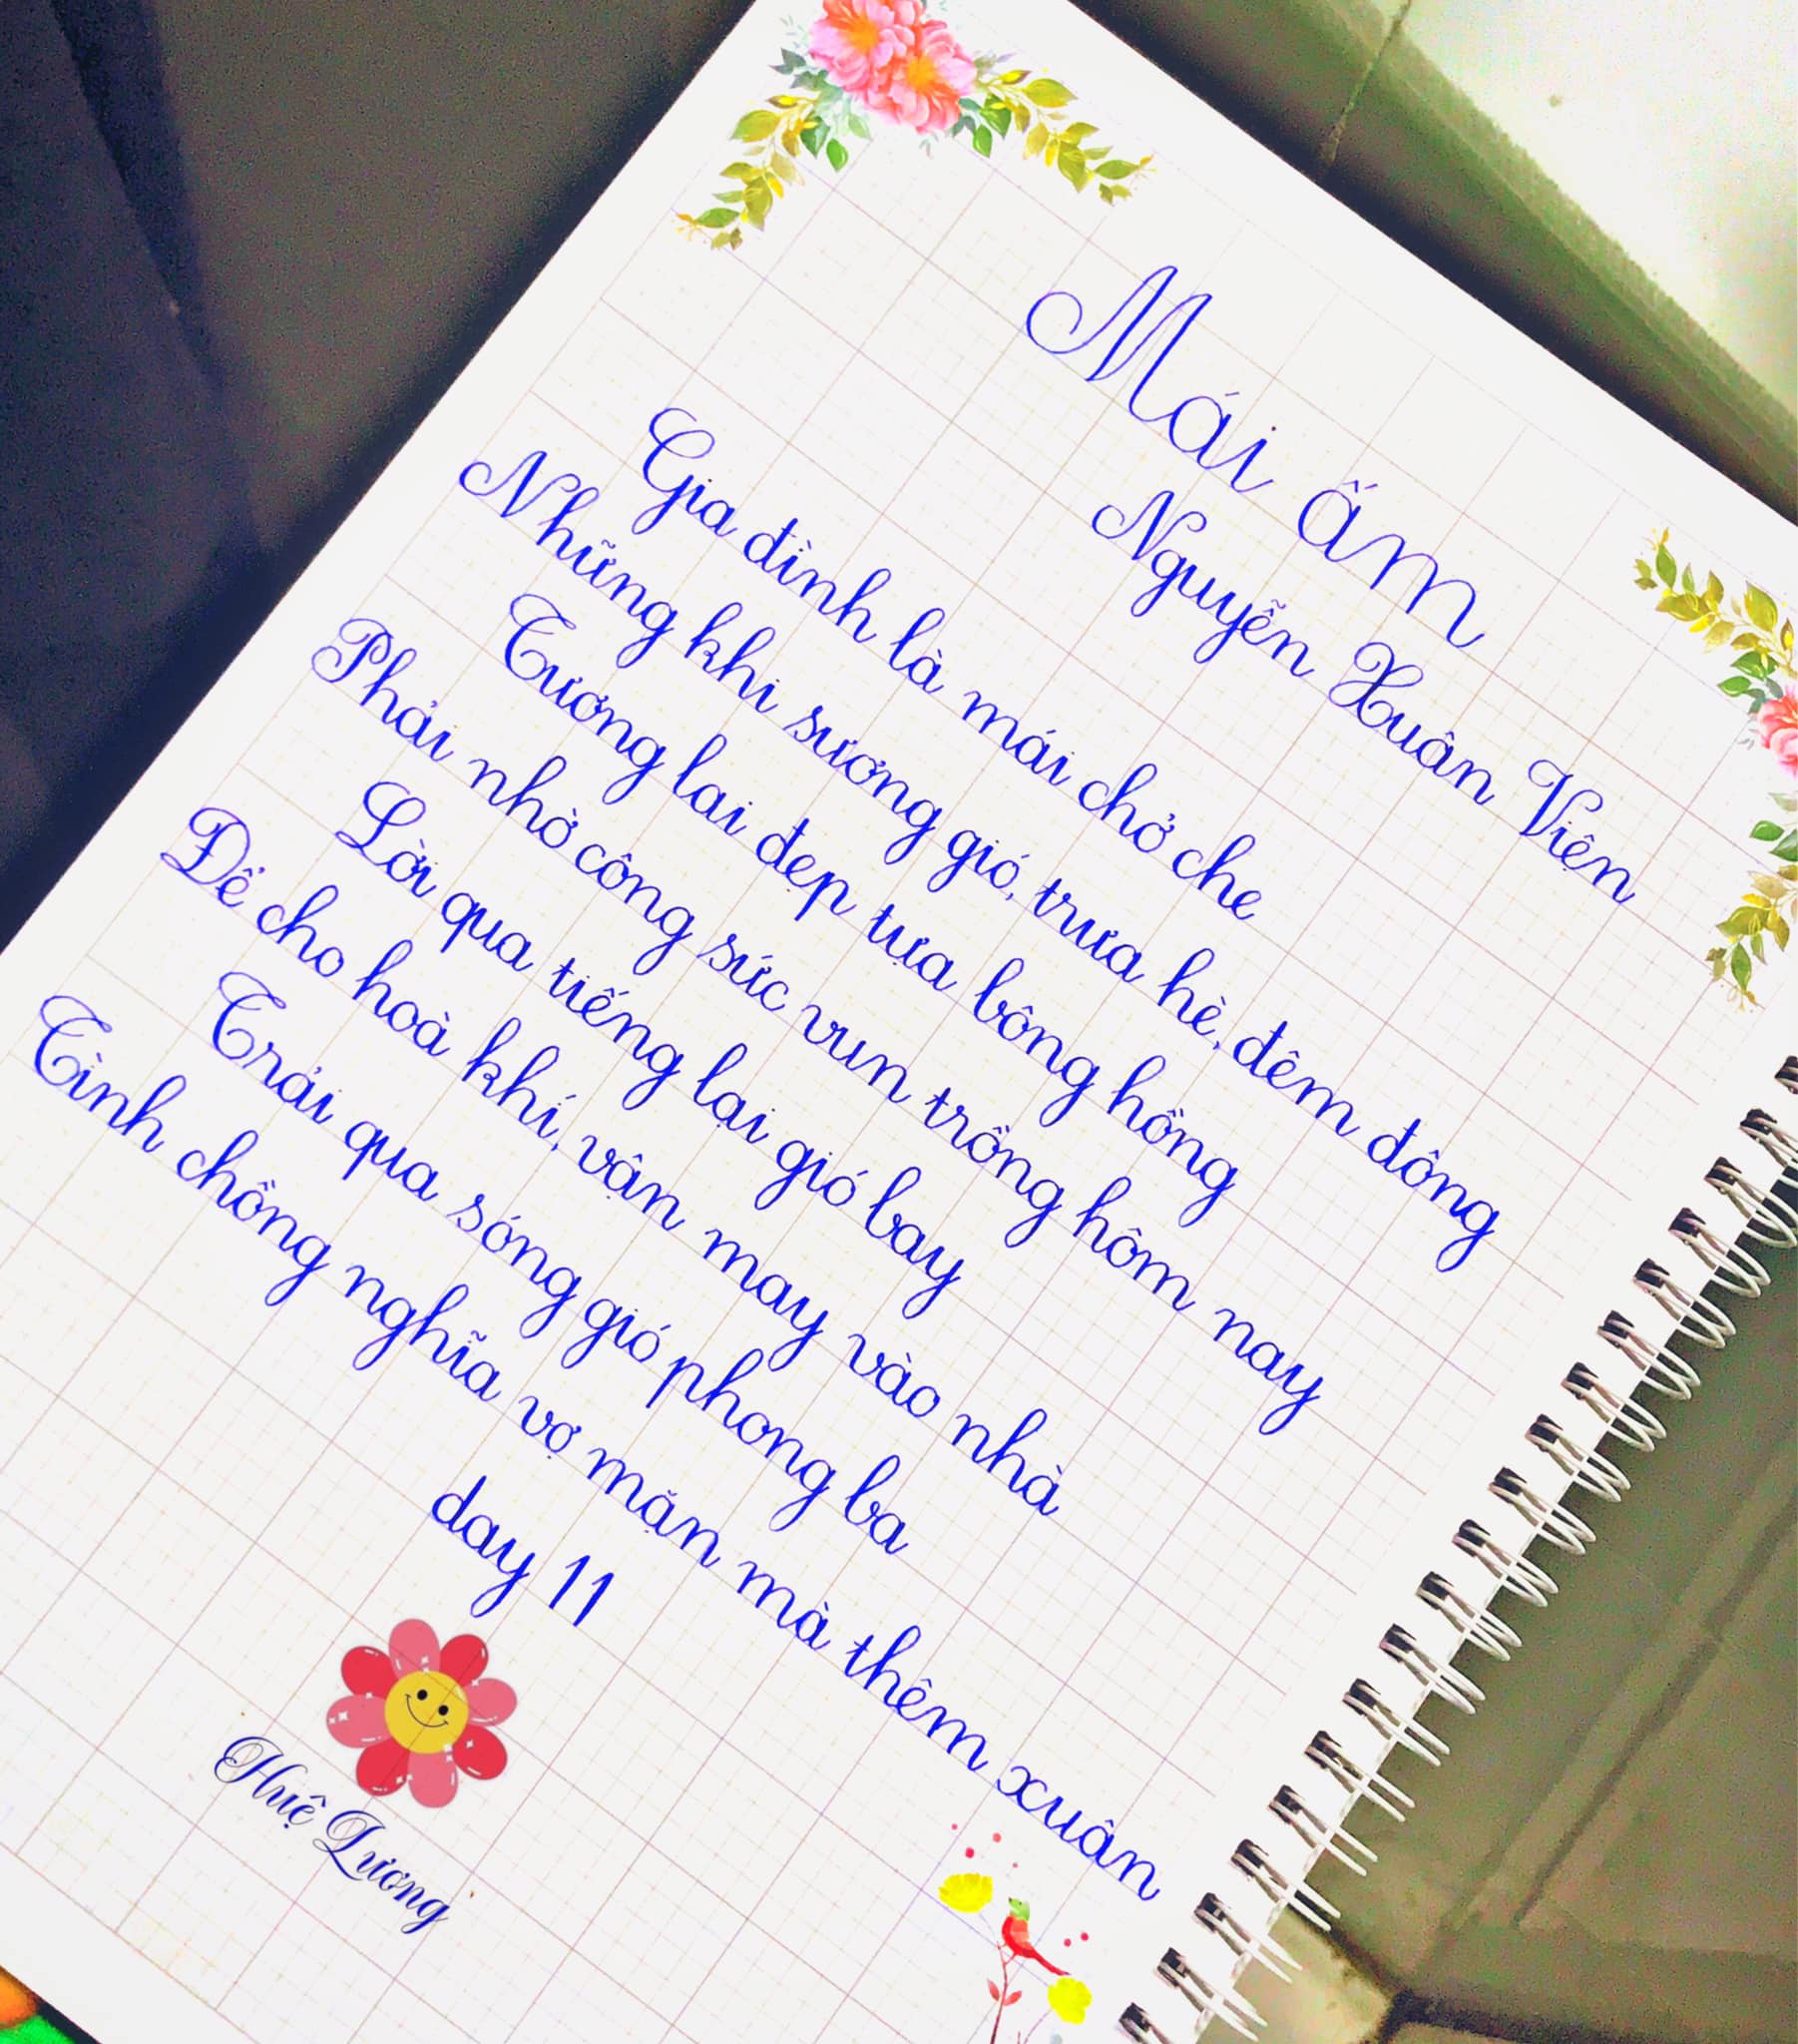 Mái ấm
Nguyễn Xuân Viên
Gia đình là mái chở che
Những khi sương gió, trưa hè, đêm đông
Tương lai đẹp tựa bông hồng
Phải nhờ công sức vun trồng hôm nay
Lời qua tiếng lại gió bay
Để cho hoà khí, vận may vào nhà
Trải qua sóng gió phong ba
Tình chồng nghĩa vợ mặn mà thêm xuân
day 11
Huệ Lương